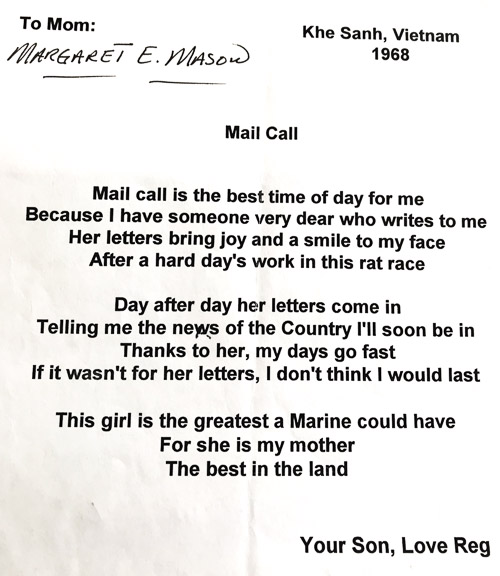 To Mom:
MARGARET E. MASON
Khe Sanh, Vietnam
1968
Mail Call
Mail call is the best time of day for me
Because I have someone very dear who writes to me
Her letters bring joy and a smile to my face
After a hard day's work in this rat race
Day after day her letters come in
Telling me the news of the Country I'll soon be in
Thanks to her, my days go fast
If it wasn't for her letters, I don't think I would last
This girl is the greatest a Marine could have
For she is my mother
The best in the land
Your Son, Love Reg